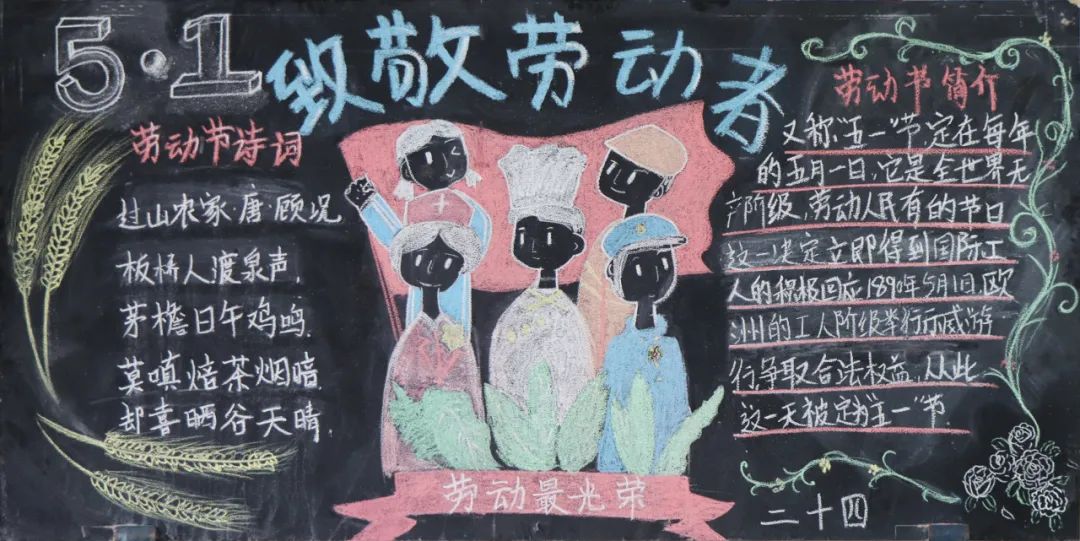 5·1
致敬劳动者
劳动节诗词
过山农家·唐 顾况
板桥人渡泉声,
茅檐日午鸡鸣.
莫嗔焙茶烟暗
却喜晒谷天晴.
劳动节简介
又称"五一"节,定在每年
的五月一日,它是全世界无
产阶级,劳动人民有的节日
这一决定立即得到国际工
人的积极回应1890年5月1日,欧
洲的工人阶级举行示威游
行,争取合法权益,从此
这一天被定为"五一"节.
劳动最光荣
二十四